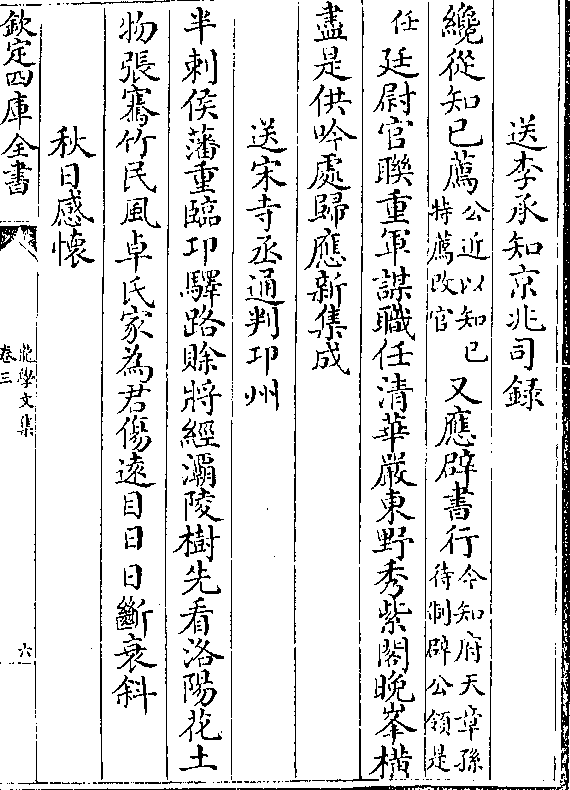 送李承知京兆司録
纔從知已薦公近以知已特薦改官又應辟書行今知府天章孫待制辟公領是
任廷尉官聯重軍謀職任清華嚴東野秀紫閣晚峯横
盡是供吟處歸應新集成
送宋寺丞通判卭州
半刺侯藩重臨卭驛路賖將經灞陵樹先看洛陽花土
物張騫竹民風卓氏家為君傷遠目日日斷衰斜
秋日感懷
欽定四庫全書
龍學文集
卷三
六